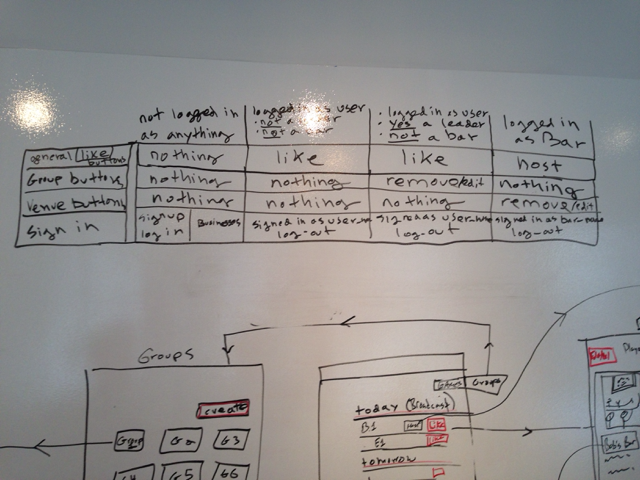 not logged in
as anything
logged in as user
· not a
· not a bar
· logged in as user
· yes a leader
· not a bar
logged in
as Bar
general like buttons
nothing
like
like
host
Group buttons
nothing
nothing
remove/edit
nothing
Venue buttons
nothing
nothing
nothing
remove/edit
sign in
signup
log in
Businesses
signed in as user-name
log-out
signed as user-name
log-out
signed in as bar-name
log-out
Groups
create
G3
G5
G6
Groups
today (Broadcast)
B1
like
E1
tomorrow
Bob's Bar